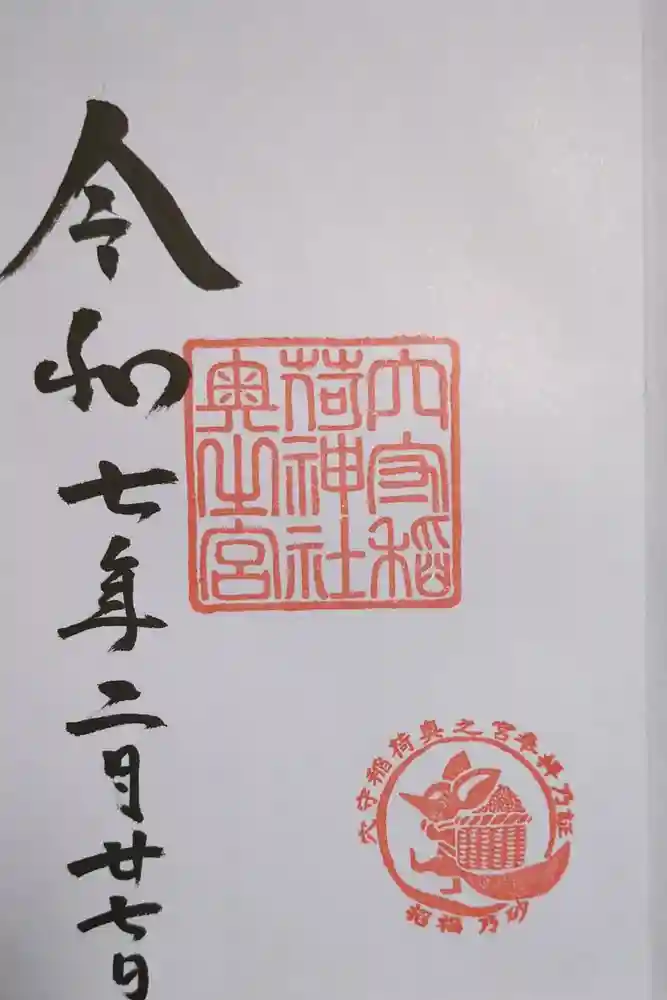 穴守稲
荷神社
奥之宮
穴守稲荷奥之宮奉拝乃証
招福乃砂
令和七年二月廿七日